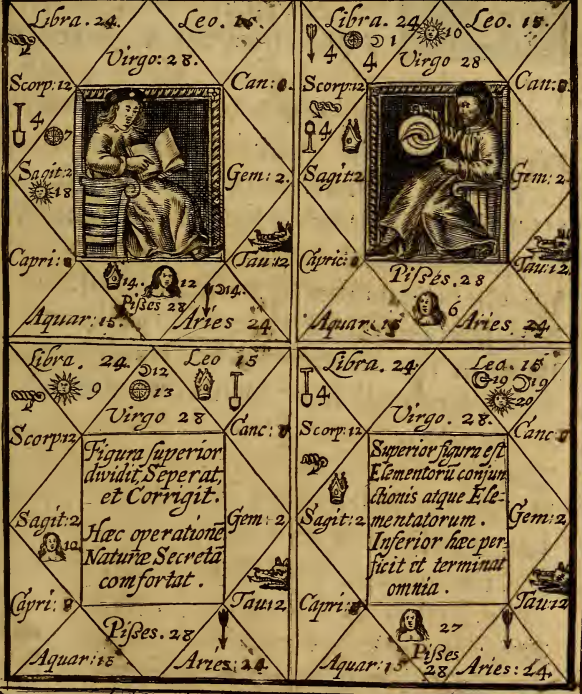 Libra. 24.
Leo. 15.
Virgo: 28.
Scorp: 12
Can:
4
7
Sagit: 2
18
Gem: 2.
Capri:
Tau: 12
14.
12
14.
Piſses 28
Aquar: 15.
Aries 24
Libra. 24
Leo. 15.
4
1
10
4
Virgo 28
Scorp: 12
Can:
4
Sagit: 2
Gem: 2
Capric:
Tau: 12.
Piſses. 28
6
Aquar: 15
Aries. 24.
Libra. 24.
Leo 15
9
12
13
Virgo 28
Scorp: 12
Canc:
Figura ſuperior
dividit, Seperat,
et Corrigit.
Hæc operationē
Naturæ Secretā
comfortat.
Sagit: 2
Gem: 2
Capri: 8
Tau: 12
Piſses. 28
Aquar: 15
Aries: 24.
Libra. 24
Leo. 15
19
19
20
4
Virgo. 28.
Scorp: 12
Canc
Superior figura eſt
Elementorū conjun
ctionis atque Ele-
mentatorum.
Inferior hæc per-
ficit et terminat
omnia.
Sagit: 2
Gem: 2
Capri:
Tau: 12
27
Piſses
28
Aquar: 15
Aries: 24.